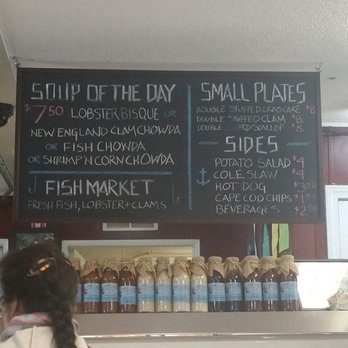 SOUP OF THE DAY
$7.50 LOBSTER BISQUE OR
NEW ENGLAND CLAM CHOWDA
OR FISH CHOWDA
OR SHRIMP 'N CORN CHOWDA
FISH MARKET
FRESH FISH, LOBSTER + CLAMS
SMALL PLATES
DOUBLE STUFFED CRAB CAKE $8
DOUBLE STUFFED CLAM $
DOUBLE STUFFED SCALLOP $
SIDES
POTATO SALAD $4
COLE SLAW $4
HOT DOG $3.50
CAPE COD CHIPS $1.50
BEVERAGES $2